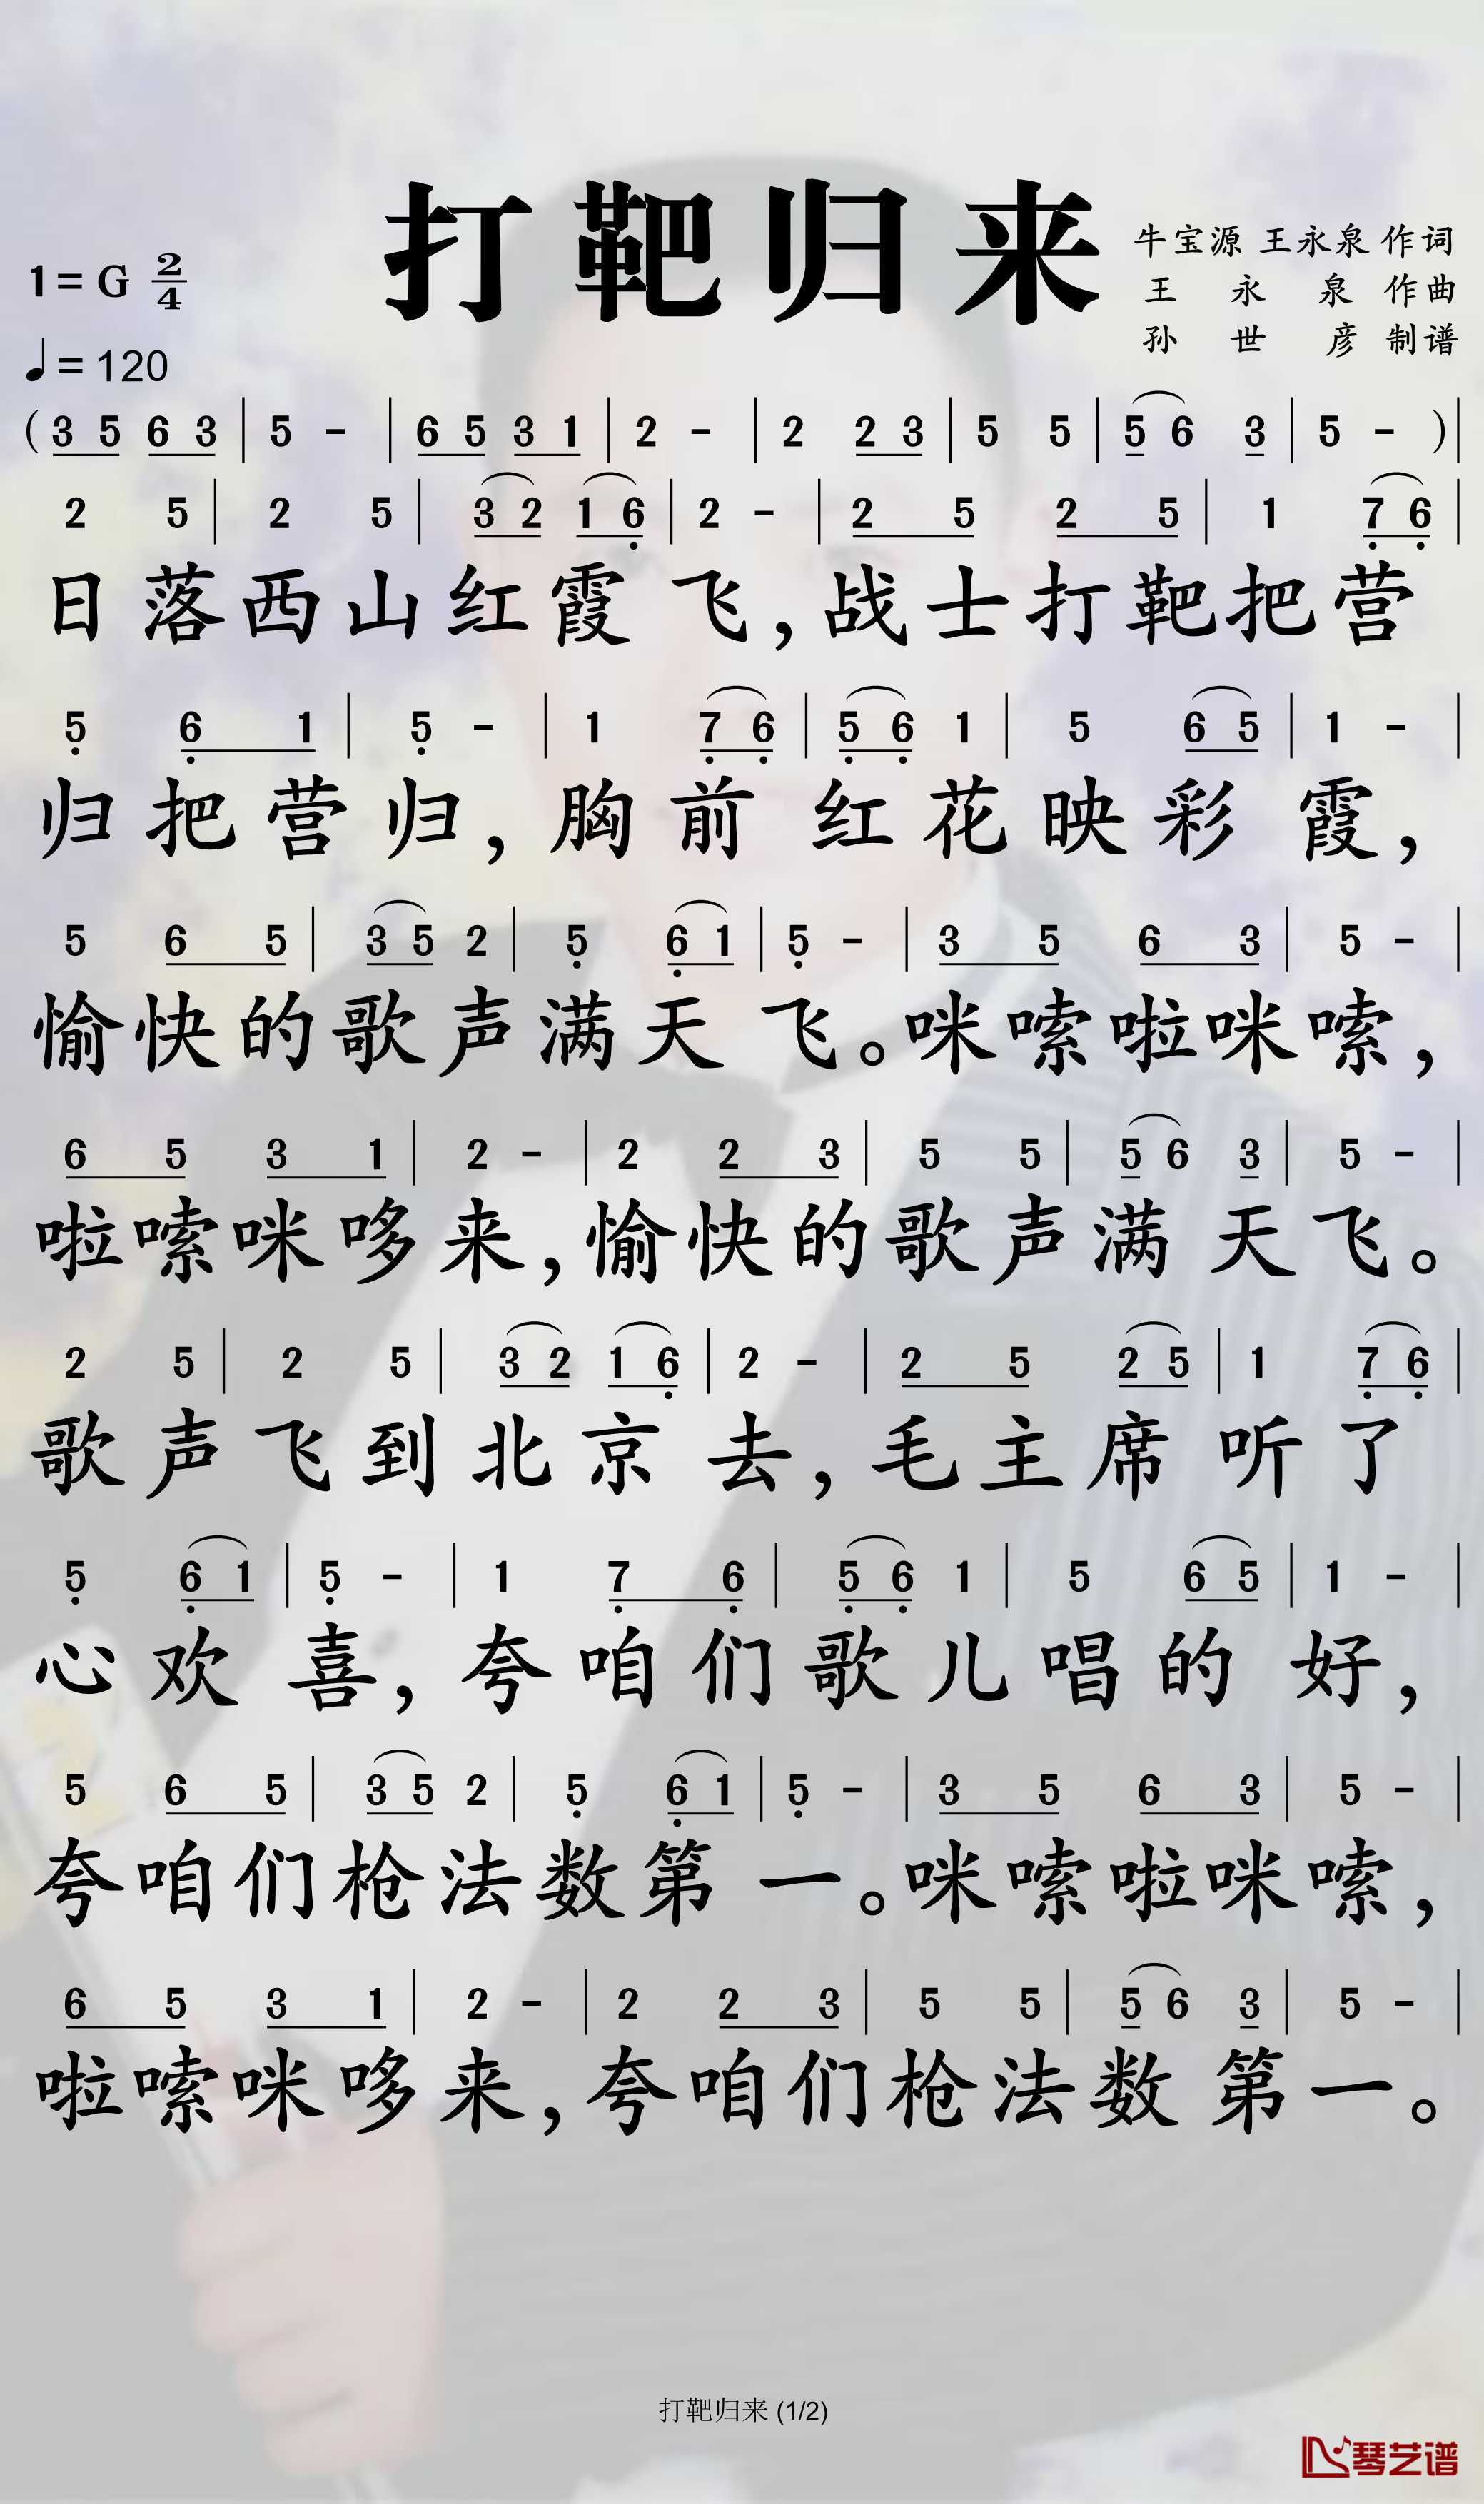 打靶归来
牛宝源 王永泉 作词
王永泉 作曲
孙世彦 制谱
1=G 2/4
♩=120
(3 5 6 3 | 5 - | 6 5 3 1 | 2 - | 2 2 3 | 5 5 | 5 6 3 | 5 - )|
2 5 | 2 5 | 3 2 1 6̣ | 2 - | 2 5 2 5 | 1 7̣ 6̣ |
日落西山红霞飞,战士打靶把营
5̣ 6̣ 1 | 5̣ - | 1 7̣ 6̣ | 5̣ 6̣ 1 | 5 6 5 | 1 - |
归把营归,胸前红花映彩霞,
5 6 5 | 3 5 2 | 5̣ 6̣ 1 | 5̣ - | 3 5 6 3 | 5 - |
愉快的歌声满天飞。咪嗦啦咪嗦,
6 5 3 1 | 2 - | 2 2 3 | 5 5 | 5 6 3 | 5 - |
啦嗦咪哆来,愉快的歌声满天飞。
2 5 | 2 5 | 3 2 1 6̣ | 2 - | 2 5 2 5 | 1 7̣ 6̣ |
歌声飞到北京去,毛主席听了
5̣ 6̣ 1 | 5̣ - | 1 7̣ 6̣ | 5̣ 6̣ 1 | 5 6 5 | 1 - |
心欢喜,夸咱们歌儿唱的好,
5 6 5 | 3 5 2 | 5̣ 6̣ 1 | 5̣ - | 3 5 6 3 | 5 - |
夸咱们枪法数第一。咪嗦啦咪嗦,
6 5 3 1 | 2 - | 2 2 3 | 5 5 | 5 6 3 | 5 - |
啦嗦咪哆来,夸咱们枪法数第一。
打靶归来 (1/2)
琴艺谱